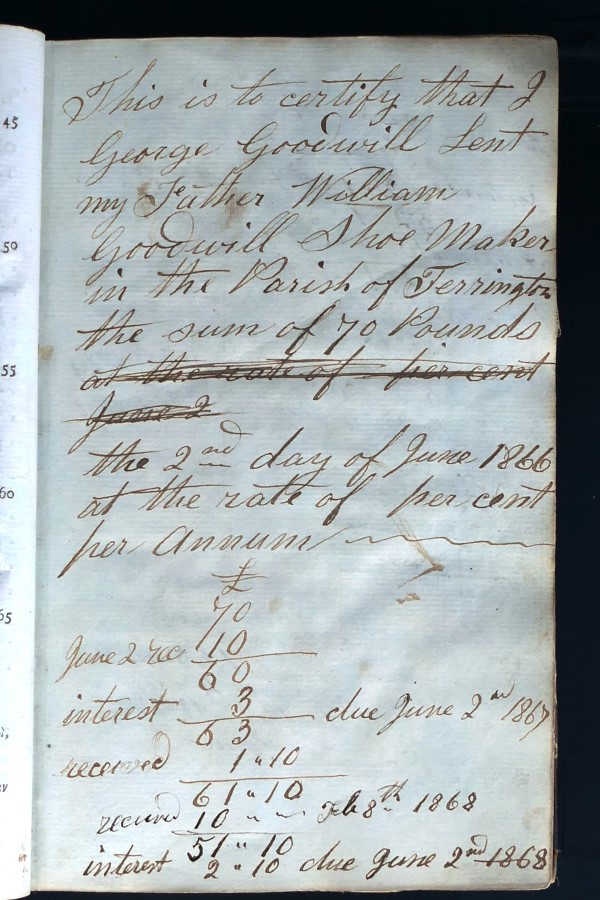 45
50
55
60
65
This is to certify that I
George Goodwill Lent
my Father William
Goodwill Shoe Maker
in the Parish of Terrington
the sum of 70 Pounds
at the rate of per cent
June 2
the 2nd day of June 1866
at the rate of per cent
per Annum
£
70
June 2 rec 10
60
interest 3 due June 2nd 1867
63
received 1 " 10
61 " 10
received 10 " " Feb 8th 1868
51 " 10
interest 2 " 10 due June 2nd 1868